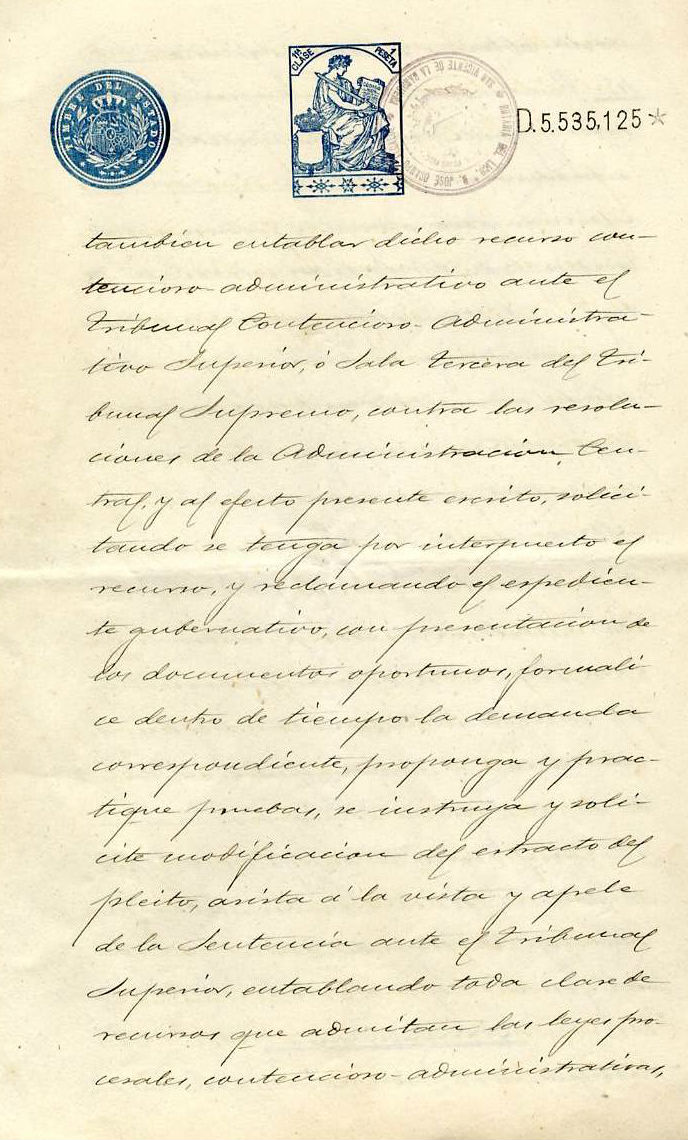 TIMBRE DEL ESTADO
1ª CLASE
1 PESETA
D.5.535,125
tambien entablar dicho recurso con-
tencioso-administrativo ante el
Tribunal Contencioso-Administra-
tivo Superior, ó Sala tercera del Tri-
bunal Supremo, contra las resolu-
ciones de la Administracion Cen-
tral, y al efecto presente escrito, solici-
tando se tenga por interpuesto el
recurso, y reclamando el espedien-
te gubernativo, con presentacion de
los documentos oportunos, formali
ce dentro de tiempo la demanda
correspondiente, proponga y prac-
tique pruebas, se instruya y soli-
cite modificacion del estracto del
pleito, asista á la vista y apele
de la Sentencia ante el Tribunal
Superior, entablando toda clase de
recursos que admitan las leyes pro-
cesales, contencioso-administrativas,